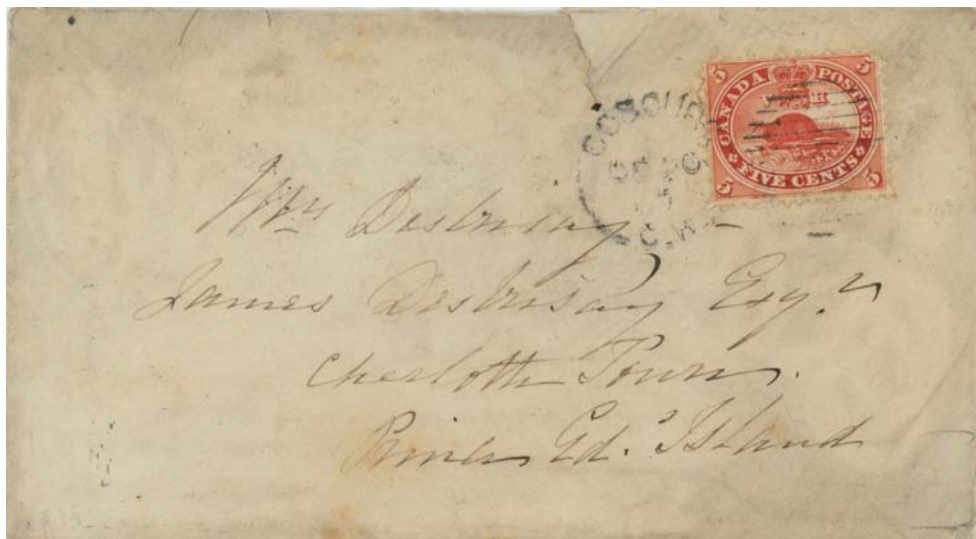 5 5
CANADA POSTAGE
FIVE CENTS
5 5
COBOURG
C.W.
Desbrisay
James Desbrisay Esqr
Charlotte Town.
Prince Ed.d Island